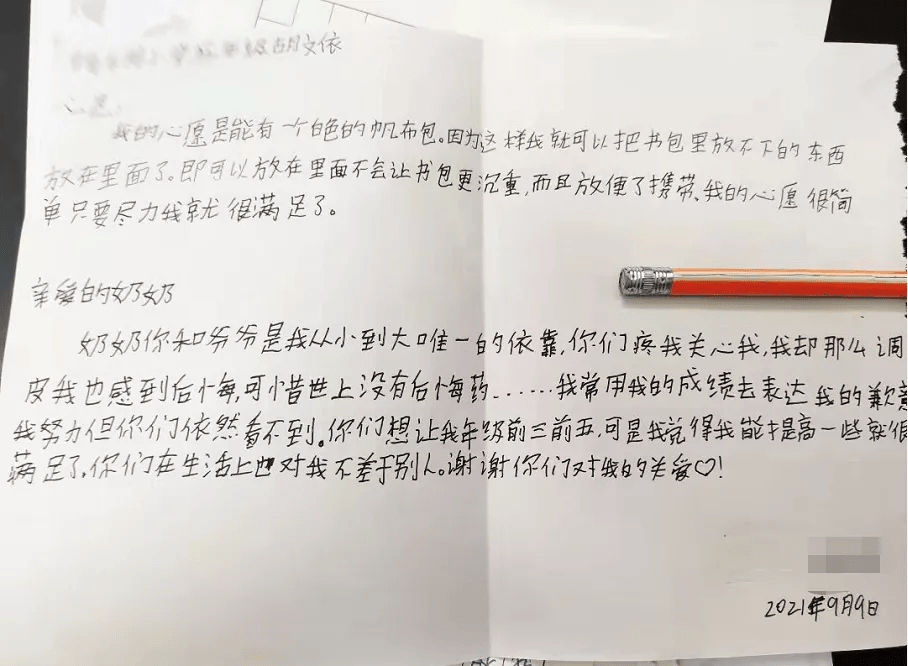 级胡文依
心愿
我的心愿是能有一个白色的帆布包。因为这样我就可以把书包里放不下的东西
放在里面了。即可以放在里面不会让书包更沉重,而且放便了携带、我的心愿很简
单只要尽力我就很满足了。
亲爱的奶奶
奶奶你和爷爷是我从小到大唯一的依靠,你们疼我关心我,我却那么调
皮我也感到后悔,可惜世上没有后悔药……我常用我的成绩去表达我的歉意
我努力但你们依然看不到。你们想让我年级前三前五,可是我觉得我能提高一些就很
满足了,你们在生活上也对我不差于别人。谢谢你们对我的关爱♡!
2021年9月9日